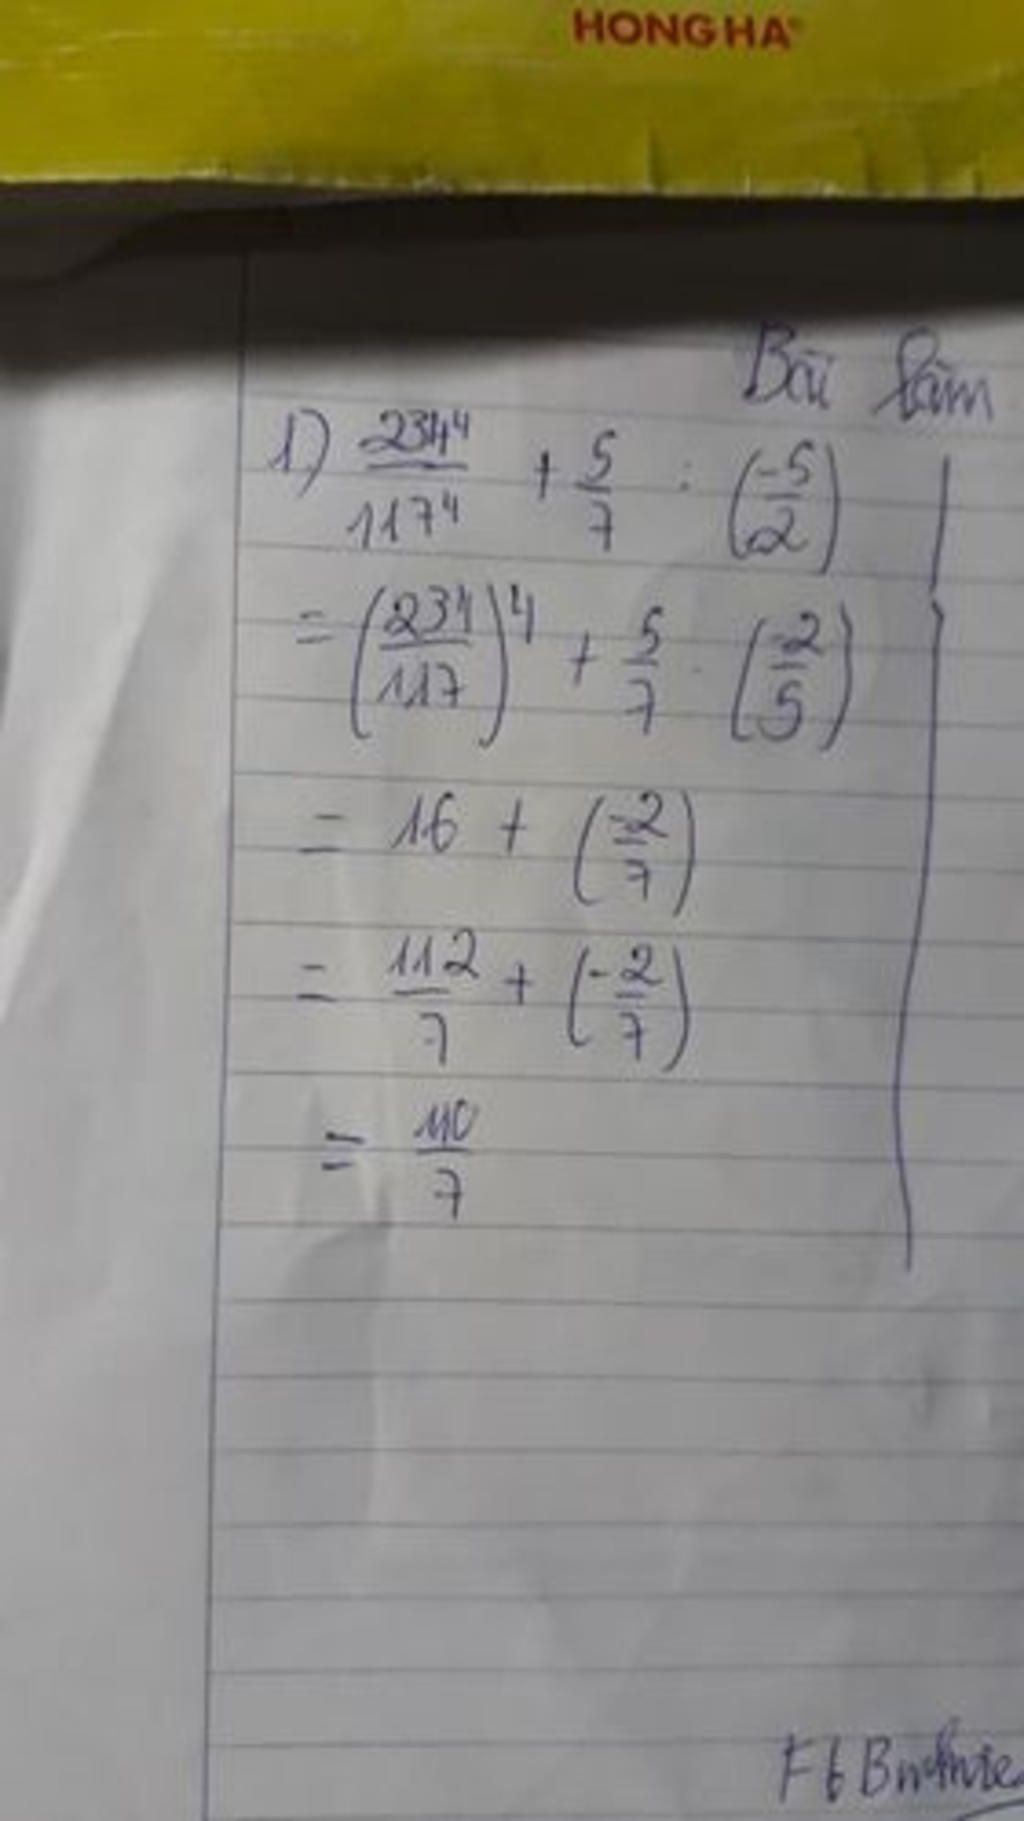 HONG HA
Bài làm
1) 234⁴/117⁴ + 5/7 : (-5/2)
= (234/117)⁴ + 5/7 . (-2/5)
= 16 + (-2/7)
= 112/7 + (-2/7)
= 110/7
Fb